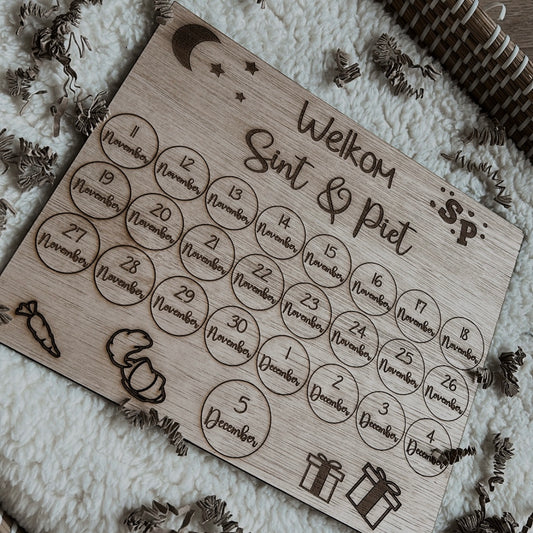 Welkom
Sint & Piet
SP
11
November
12
November
13
November
14
November
15
November
16
November
17
November
18
November
19
November
20
November
21
November
22
November
23
November
24
November
25
November
26
November
27
November
28
November
29
November
30
November
1
December
2
December
3
December
4
December
5
December